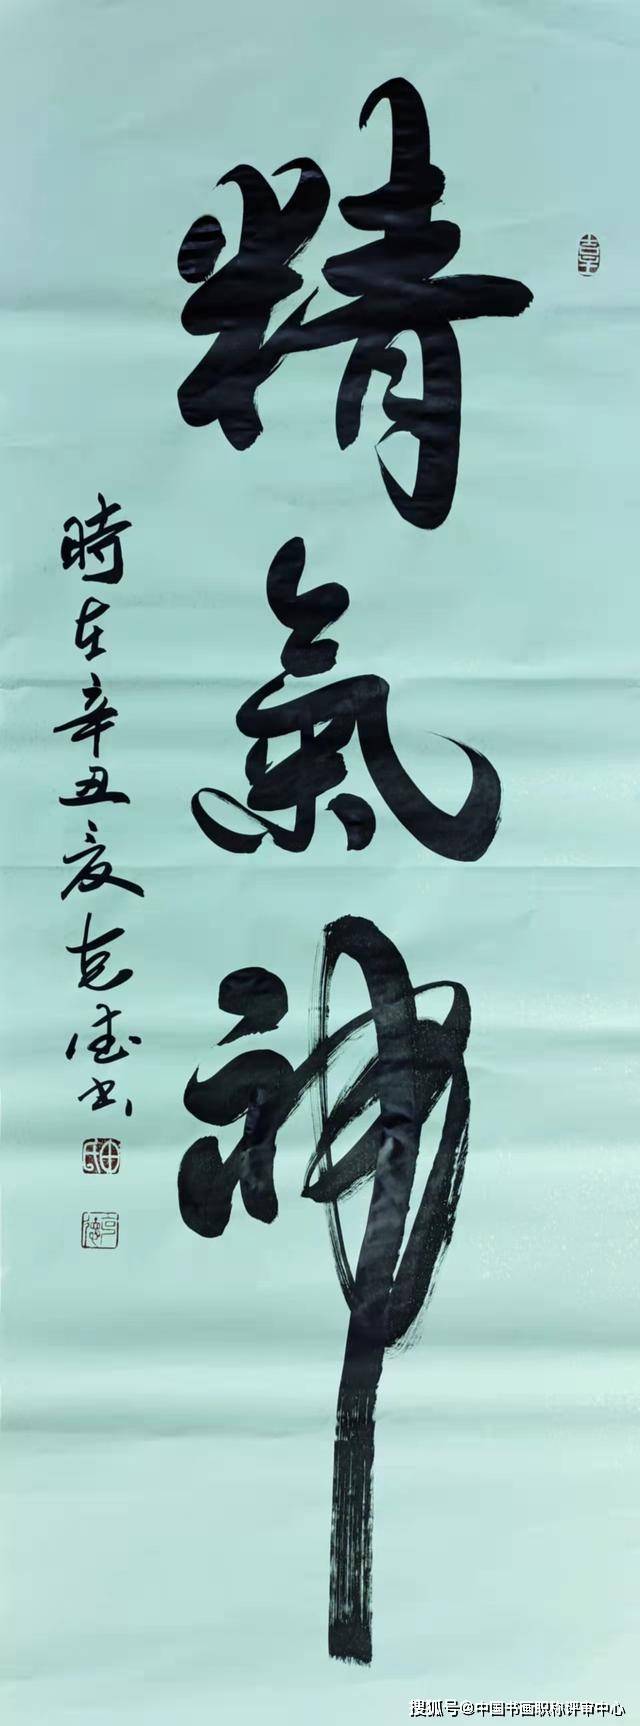 精氣神
時在辛丑夏克德书
搜狐号@中国书画职称评审中心